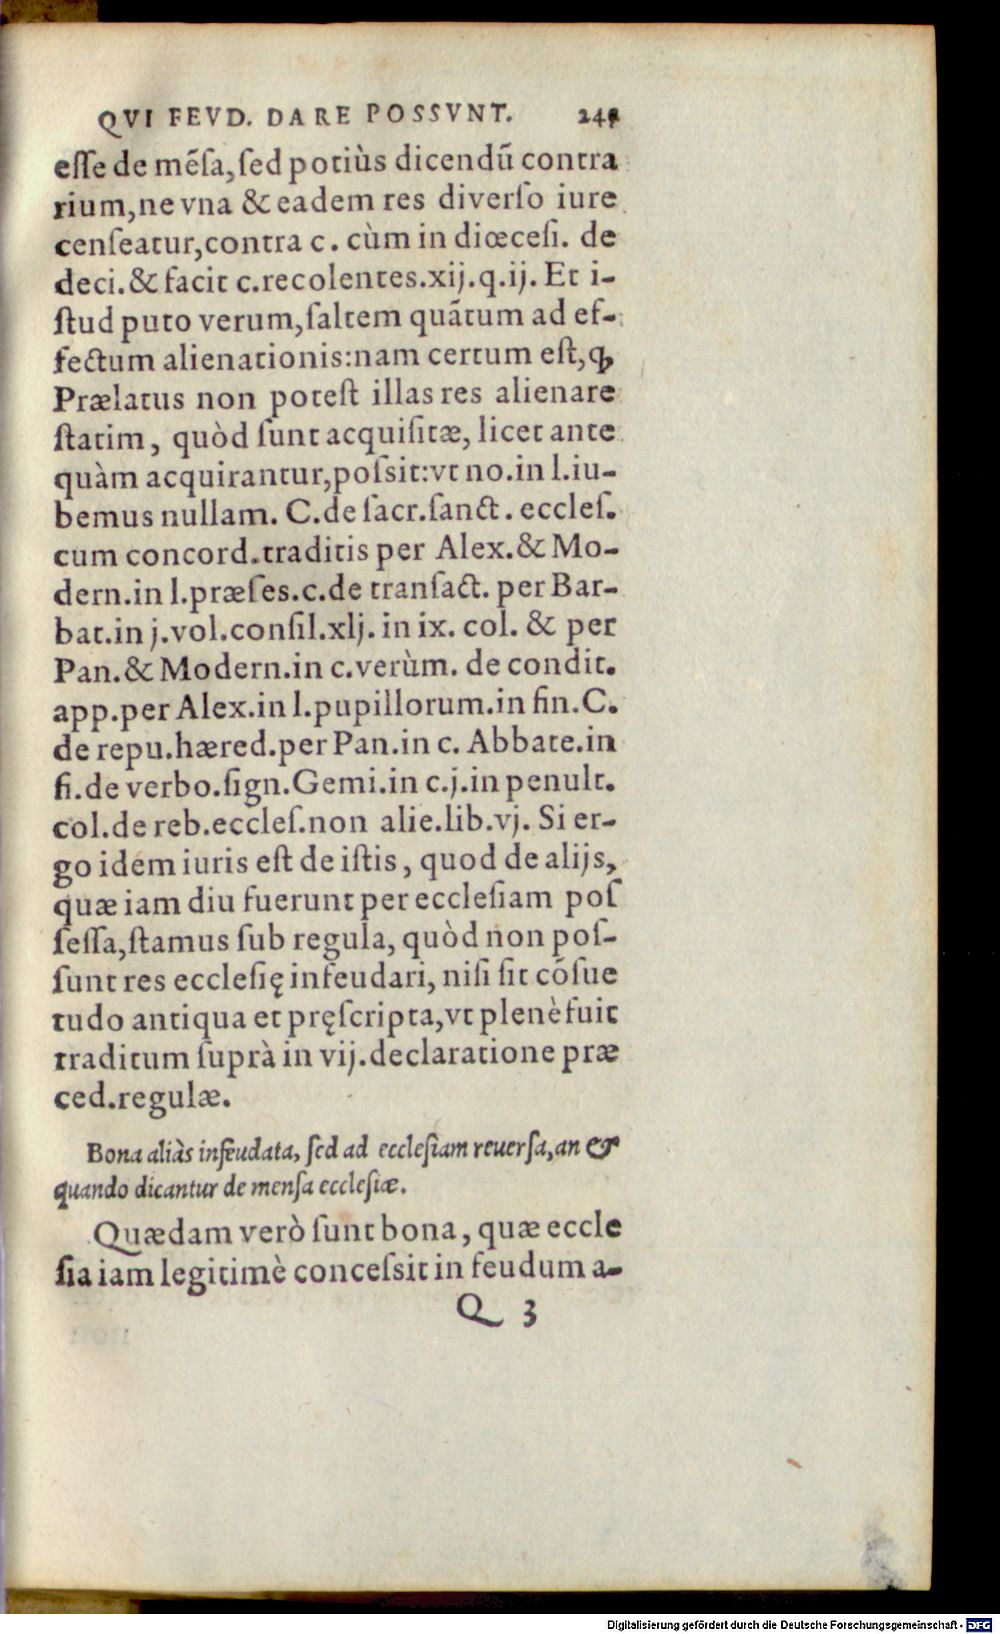 QVI FEVD. DARE POSSVNT. 245
esse de mẽsa, sed potiùs dicendũ contra
rium, ne vna & eadem res diverso iure
censeatur, contra c. cùm in diœcesi. de
deci. & facit c. recolentes. xij. q. ij. Et i-
ſtud puto verum, ſaltem quãtum ad ef-
fectum alienationis: nam certum eſt, ꝙ
Prælatus non poteſt illas res alienare
ſtatim, quòd ſunt acquiſitæ, licet ante
quàm acquirantur, poſsit: vt no. in l. iu-
bemus nullam. C. de ſacr. ſanct. eccleſ.
cum concord. traditis per Alex. & Mo-
dern. in l. præſes. c. de tranſact. per Bar-
bat. in j. vol. conſil. xlj. in ix. col. & per
Pan. & Modern. in c. verùm. de condit.
app. per Alex. in l. pupillorum. in fin. C.
de repu. hæred. per Pan. in c. Abbate. in
fi. de verbo. ſign. Gemi. in c. j. in penult.
col. de reb. eccleſ. non alie. lib. vj. Si er-
go idem iuris eſt de iſtis, quod de alijs,
quæ iam diu fuerunt per eccleſiam poſ
ſeſſa, ſtamus ſub regula, quòd non poſ-
ſunt res eccleſię infeudari, niſi ſit cõſue
tudo antiqua et pręſcripta, vt plenè fuit
traditum ſuprà in vij. declaratione præ
ced. regulæ.
Bona aliàs infeudata, ſed ad eccleſiam reuerſa, an &
quando dicantur de menſa eccleſiæ.
Quædam verò ſunt bona, quæ eccle
ſia iam legitimè conceſsit in feudum a-
Q 3
Digitalisierung gefördert durch die Deutsche Forschungsgemeinschaft - DFG